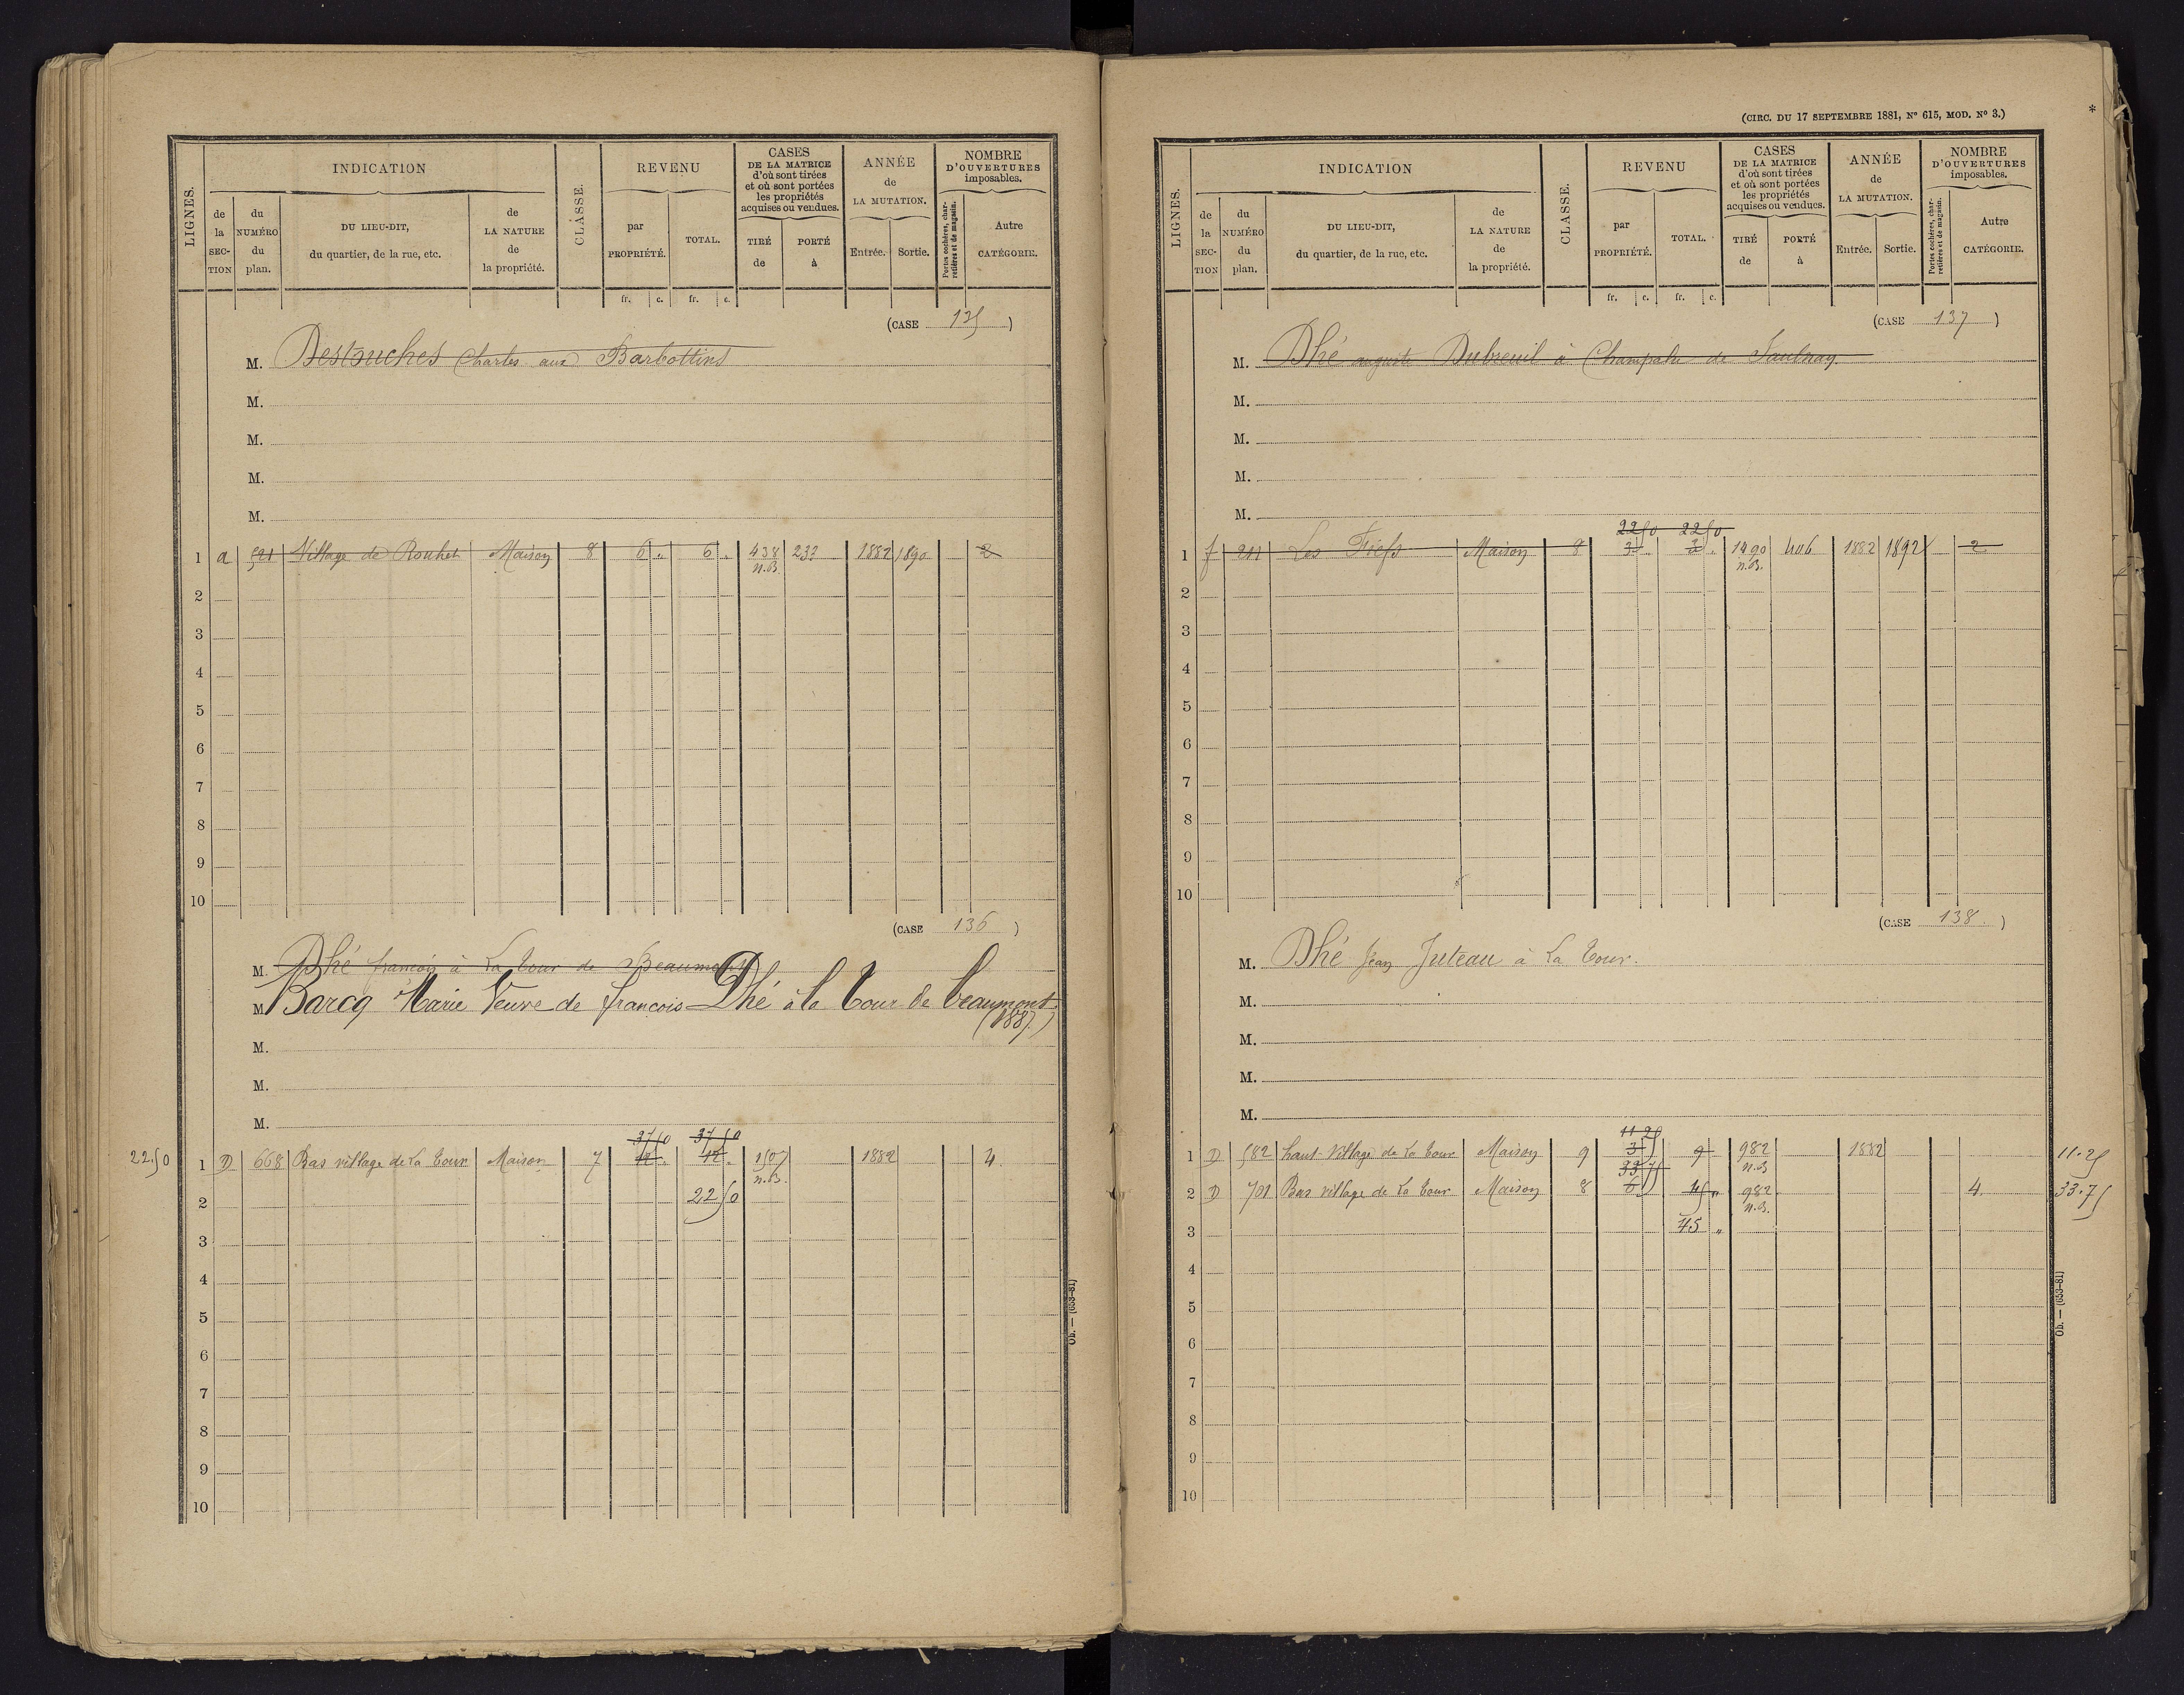 LIGNES.
INDICATION
de la SEC-TION
du NUMÉRO du plan.
DU LIEU-DIT, du quartier, de la rue, etc.
de LA NATURE de la propriété.
CLASSE.
REVENU
par PROPRIÉTÉ.
TOTAL.
CASES DE LA MATRICE d'où sont tirées et où sont portées les propriétés acquises ou vendues.
TIRÉ de
PORTÉ à
ANNÉE de LA MUTATION.
Entrée.
Sortie.
NOMBRE D'OUVERTURES imposables.
Portes cochères, charretières et de magasin.
Autre CATÉGORIE.
fr. c. fr. c.
(CASE 135)
M. Destouches Charles aux Barbottins
M.
M.
M.
M.
1 a 521 Village de Rouhet Maison 8 6 " 6 " 438 233 1882 1890 2
n.B.
2
3
4
5
6
7
8
9
10
(CASE 136)
M. Dhé francois à La Tour de Beaumont
M. Barcq Marie Veuve de francois Dhé à la Tour de beaumont
(1887)
M.
M.
M.
37 50 37 50
22.50 1 D 668 Bas village de La Tour Maison 7 12 " 12 " 1507 1882 4.
n.B.
2 22 50
3
4
5
6
7
8
9
10
Ob. — (653-81)
(CIRC. DU 17 SEPTEMBRE 1881, N° 615, MOD. N° 3.)
*
LIGNES.
INDICATION
de la SEC-TION
du NUMÉRO du plan.
DU LIEU-DIT, du quartier, de la rue, etc.
de LA NATURE de la propriété.
CLASSE.
REVENU
par PROPRIÉTÉ.
TOTAL.
CASES DE LA MATRICE d'où sont tirées et où sont portées les propriétés acquises ou vendues.
TIRÉ de
PORTÉ à
ANNÉE de LA MUTATION.
Entrée.
Sortie.
NOMBRE D'OUVERTURES imposables.
Portes cochères, charretières et de magasin.
Autre CATÉGORIE.
fr. c. fr. c.
(CASE 137)
M. Dhé auguste Dubreuil à Champalu de Saulnay
M.
M.
M.
M.
22 50 22 50
1 f 211 Les Fiefs Maison 8 3 " 3 " 1490 406 1882 1892 2
n.B.
2
3
4
5
6
7
8
9
10
(CASE 138.)
M. Dhé Jean Juteau à La Tour.
M.
M.
M.
M.
11 25
1 D 582 haut Village de La Tour Maison 9 3 9 982 1882 11.25
33 75 n.B
2 D 701 Bas village de La Tour Maison 8 6 45 " 982 4. 33.75
n.B.
3 45 "
4
5
6
7
8
9
10
Ob. — (653-81)